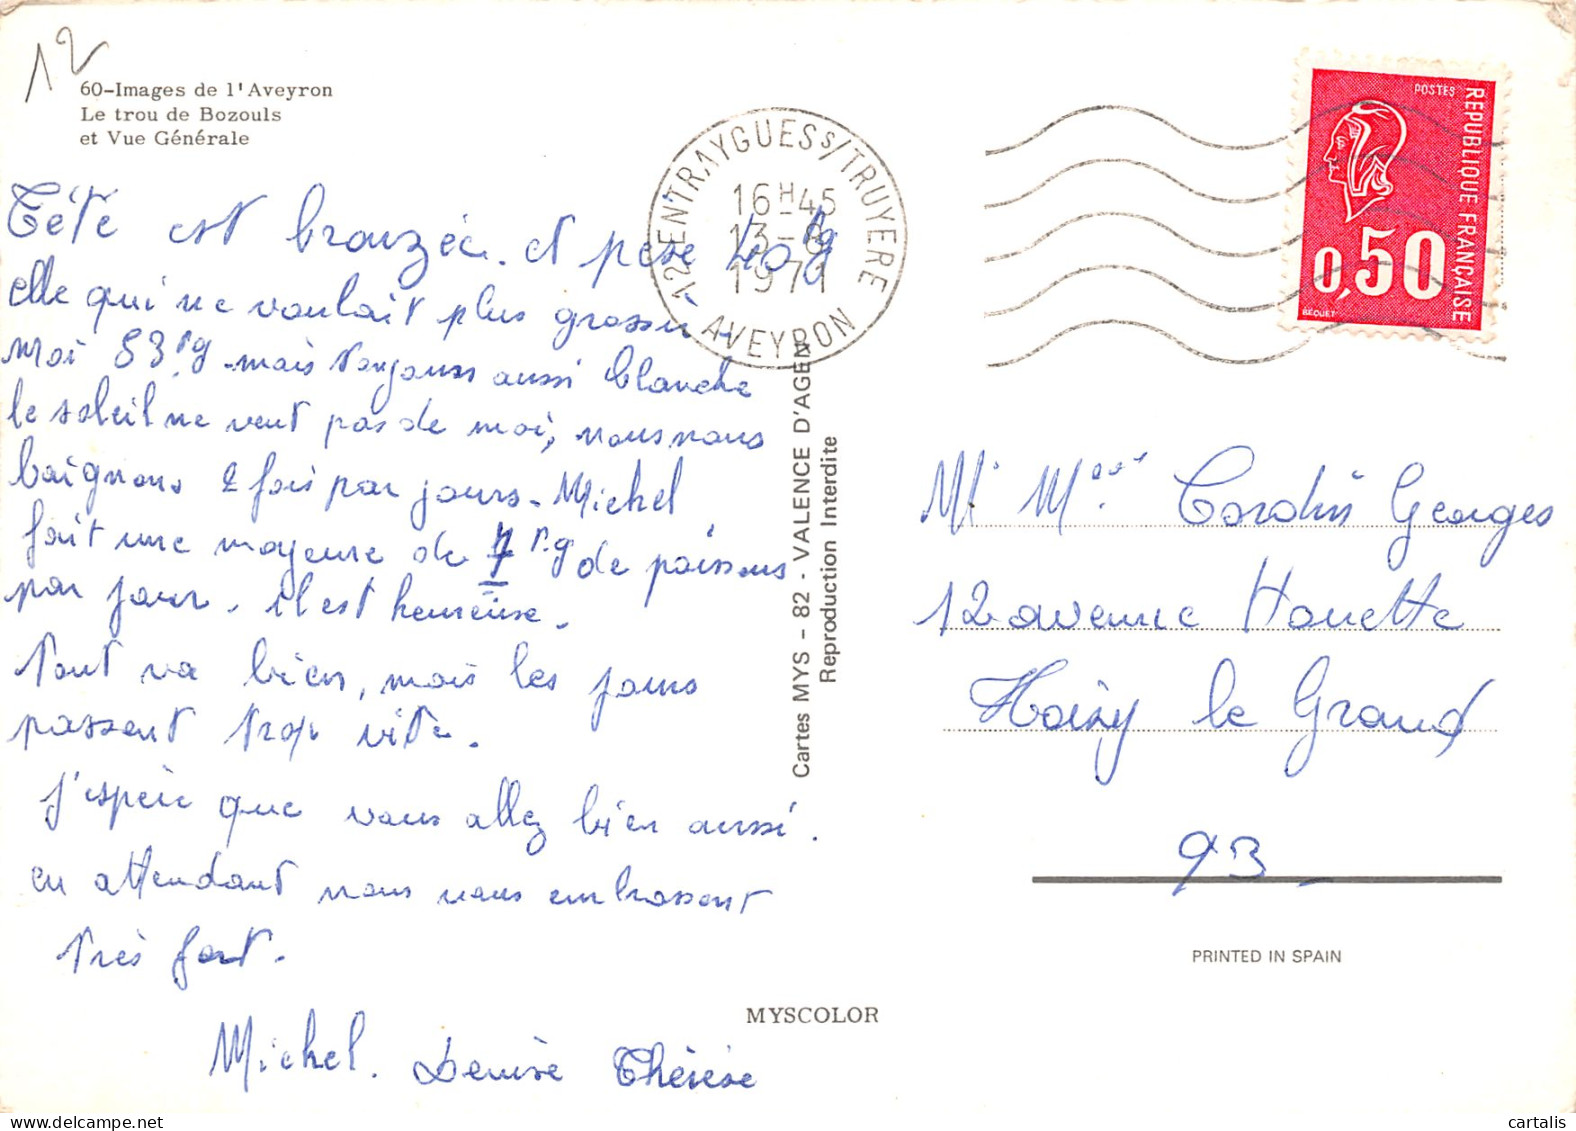 12
60-Images de l'Aveyron
Le trou de Bozouls
et Vue Générale
12 ENTRAYGUES S/TRUYERE
16H45
13-8
1971
AVEYRON
POSTES
REPUBLIQUE FRANÇAISE
0,50
BEQUET
Tété est bronzée. et pèse 40 Kg
elle qui ne voulait plus grossir -
moi 53 Kg - mais toujours aussi blanche
le soleil ne veut pas de moi, nous nous
baignons 2 fois par jours - Michel
fait une moyenne de 7 Kg de poissons
par jour. il est heureuse.
Tout va bien, mais les jours
passent trop vite.
J'espère que vous allez bien aussi.
en attendant nous vous embrassont
très fort.
Michel. Denise Thérèse
Cartes MYS - 82 - VALENCE D'AGEN
Reproduction Interdite
M. Mme Georges
12 avenue Houette
Noisy le Grand
93
PRINTED IN SPAIN
MYSCOLOR
cartalis